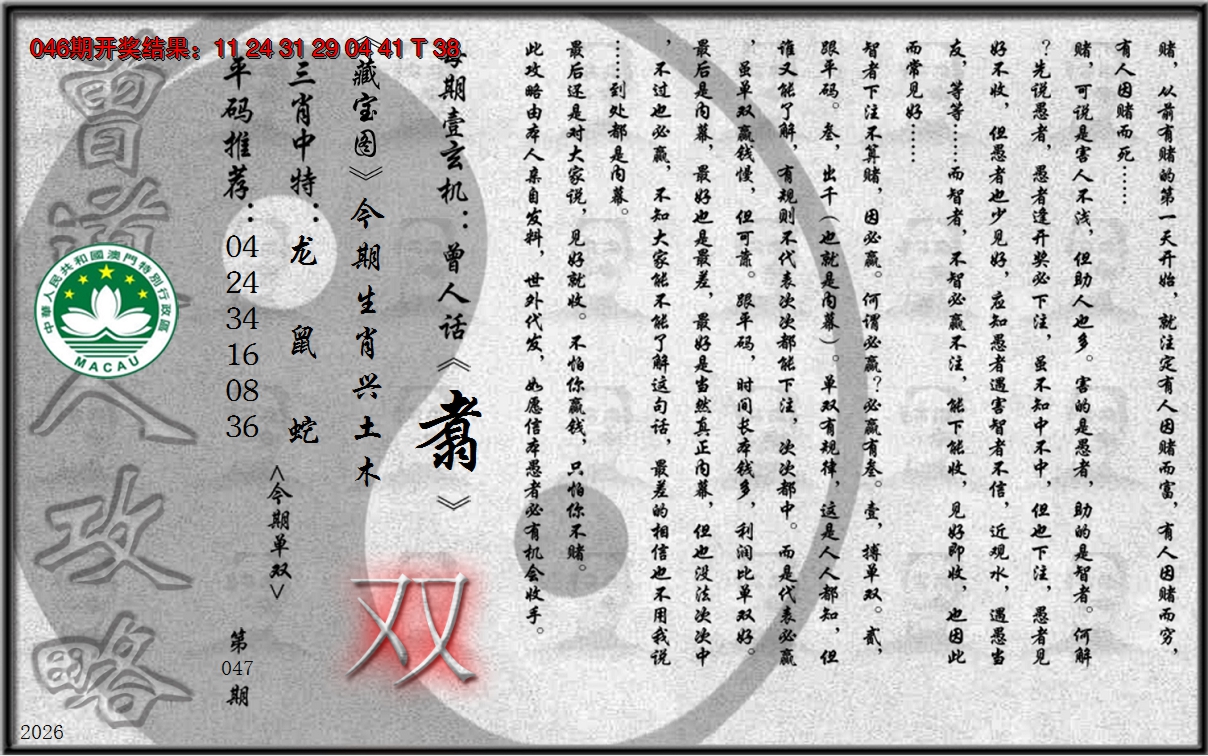 046期开奖结果：11 24 31 29 04 41 T 38
赌，从前有赌的第一天开始，就注定有人因赌而富，有人因赌而穷，
有人因赌而死……
赌，可说是害人不浅，但助人也多。害的是愚者，助的是智者。何解
？先说愚者，愚者逢开奖必下注，虽不知中不中，但也下注，愚者见
好不收，但愚者也少见好，应知愚者遇害智者不信，近观水，遇愚当
友，等等……而智者，不智必赢不注，能下能收，见好即收，也因此
而常见好……
智者下注不算赌，因必赢。何谓必赢？必赢有叁。壹，搏单双。贰，
跟平码。叁，出千（也就是内幕）。单双有规律，这是人人都知，但
谁又能了解，有规则不代表次次都能下注，次次都中。而是代表必赢
，虽单双赢钱慢，但可靠。跟平码，时间长本钱多，利润比单双好。
最后是内幕，最好也是最差，最好是当然真正内幕，但也没法次次中
，不过也必赢，不知大家能不能了解这句话，最差的相信也不用我说
……到处都是内幕。
最后还是对大家说，见好就收。不怕你赢钱，只怕你不赌。
此攻略由本人亲自发料，世外代发，如愿信本愚者必有机会收手。
每期壹玄机：曾人话《翥》
《藏宝图》今期生肖兴土木
双
三肖中特：龙 鼠 蛇
<今期单双>
平码推荐：
04
24
34
16
08
36
第
047
期
曾道人攻略
中華人民共和國澳門特別行政區
MACAU
2026